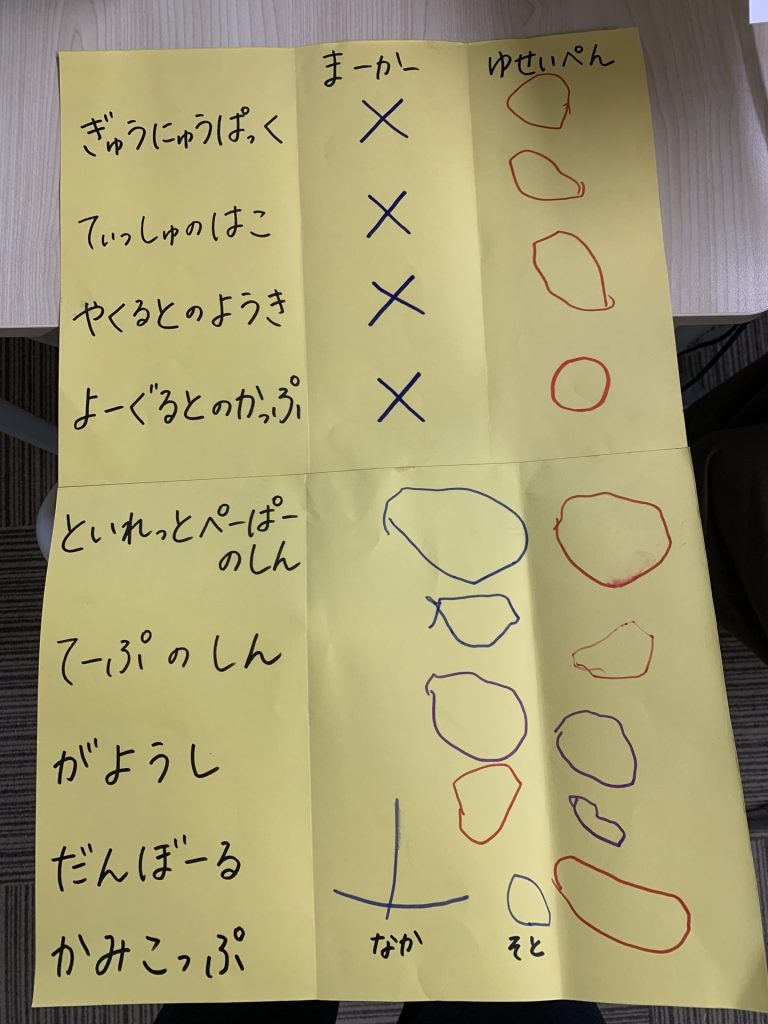 まーかー ゆせいぺん
ぎゅうにゅうぱっく
てぃっしゅのはこ
やくるとのようき
よーぐるとのかっぷ
といれっとぺーぱー
のしん
てーぷのしん
がようし
だんぼーる
かみこっぷ
なか そと